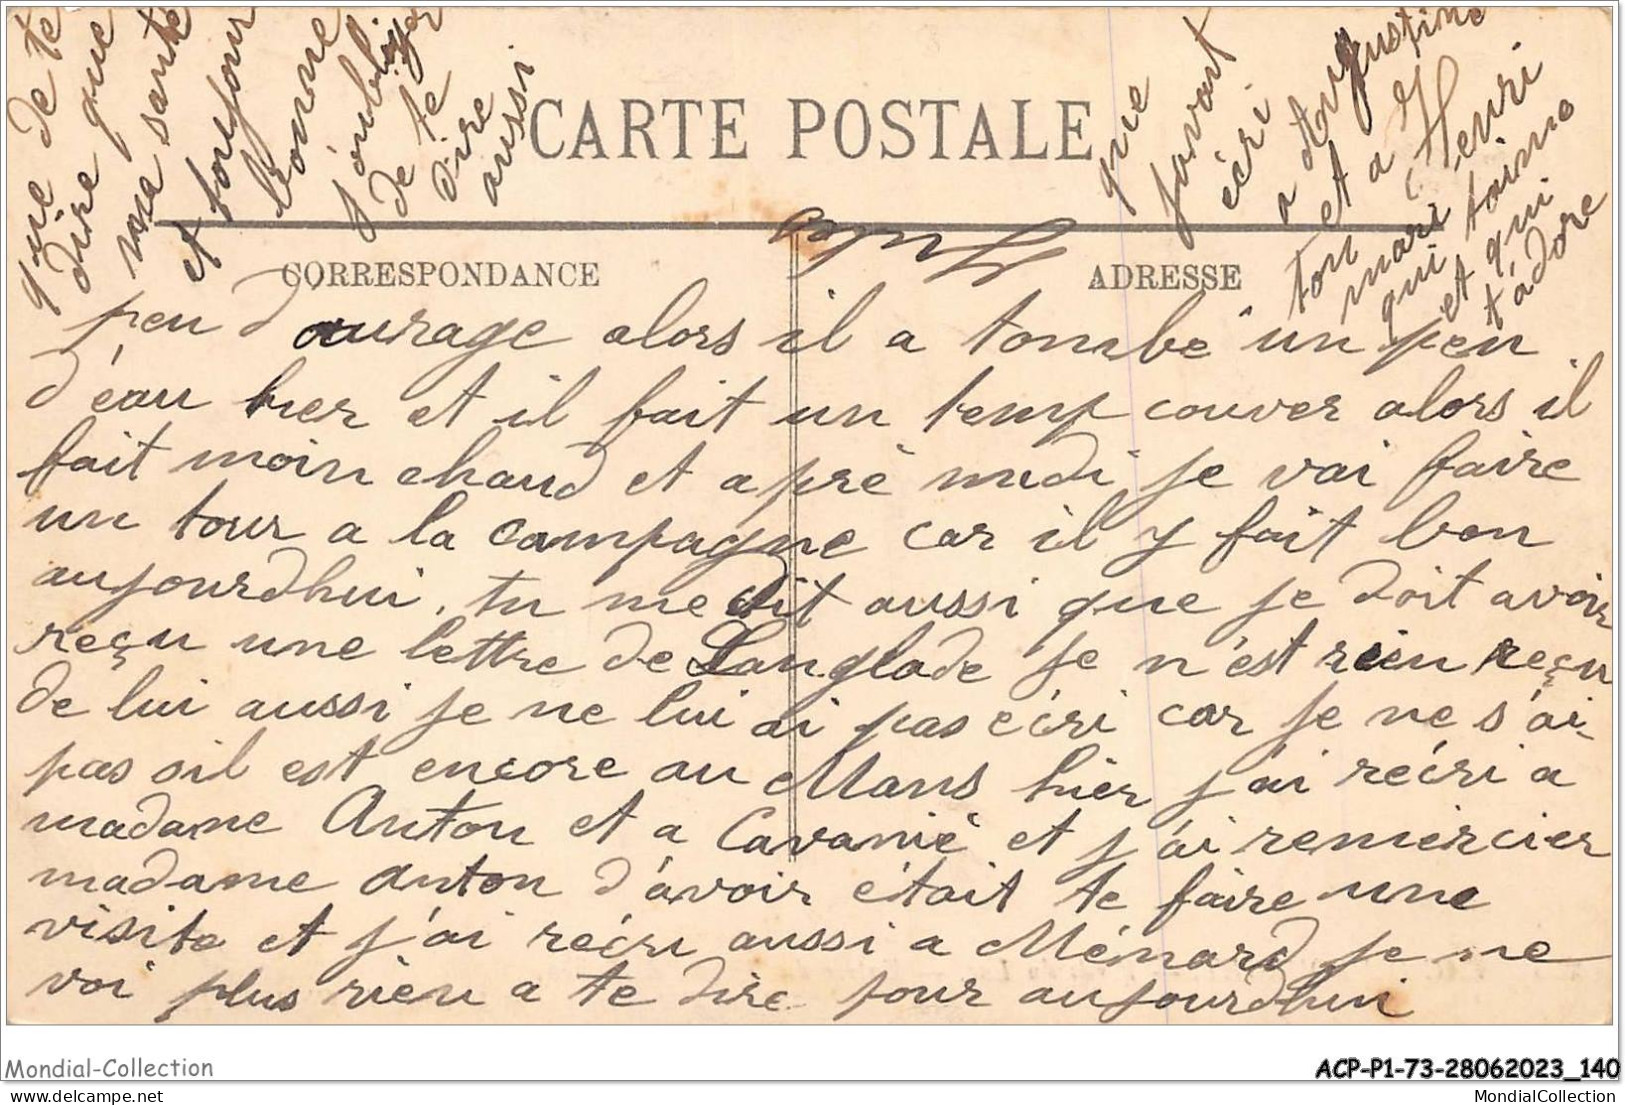 CARTE POSTALE
CORRESPONDANCE
ADRESSE
peu d'ourage alors il a tombé un peu
d'éau hier et il fait un temp couver alors il
fait moin chaud et aprè midi je vai faire
un tour a la campagne car il y fait bon
aujourdhui. tu me dit aussi que je doit avoir
reçu une lettre de Langlade je n'est rien reçu
de lui aussi je ne lui ai pas écri car je ne s'ai
pas sil est encore au Mans hier j'ai récri a
madame Anton et a Cavanié et j'ai remercier
madame Anton d'avoir était te faire une
visite et j'ai récri aussi a Ménard je ne
voi plus rien a te dire pour aujourdhui
que de te
dire que
ma santé
et toujour
bonne
j'oubliger
de te
dire
aussi
que
javait
écri
a Augustine
et a Henri
ton
mari
qui t'aime
et qui
t'adore
Mondial-Collection
ACP-P1-73-28062023_140
delcampe.net
MondialCollection